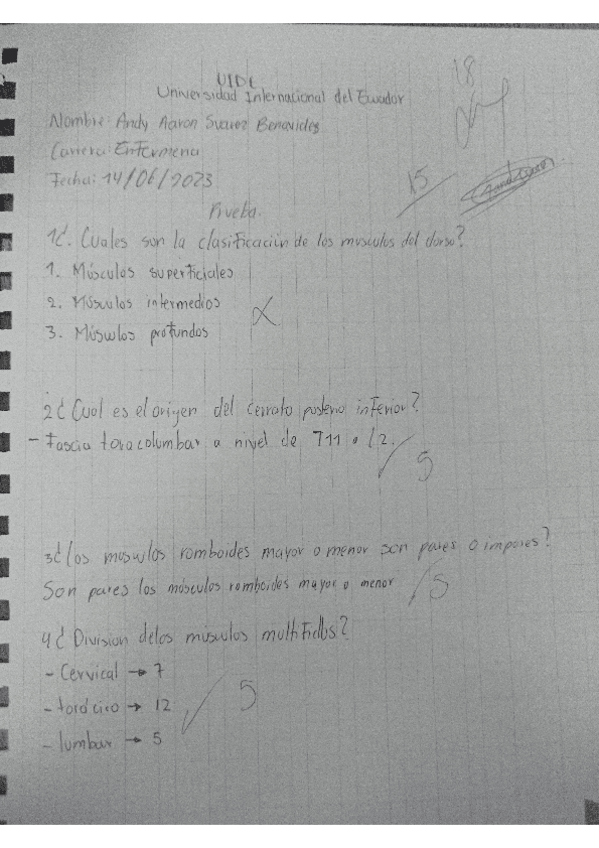 UIDE
Universidad Internacional del Ecuador
18
Nombre: Andy Aaron Suarez Benavides
Carrera: Enfermeria
Fecha: 14/06/2023
15
Prueba.
1¿. Cuales son la clasificación de los musculos del dorso?
1. Músculos superficiales
2. Músculos intermedios
3. Músculos profundos
2¿ Cual es el origen del cerrato posterio inferior?
- Fascia toracolumbar a nivel de T11 a L2.
5
3¿ Los musculos romboides mayor o menor son pares o impares?
Son pares los músculos romboides mayor o menor
5
4¿ Division de los músculos multifidos?
- Cervical → 7
- torácico → 12
- lumbar → 5
5